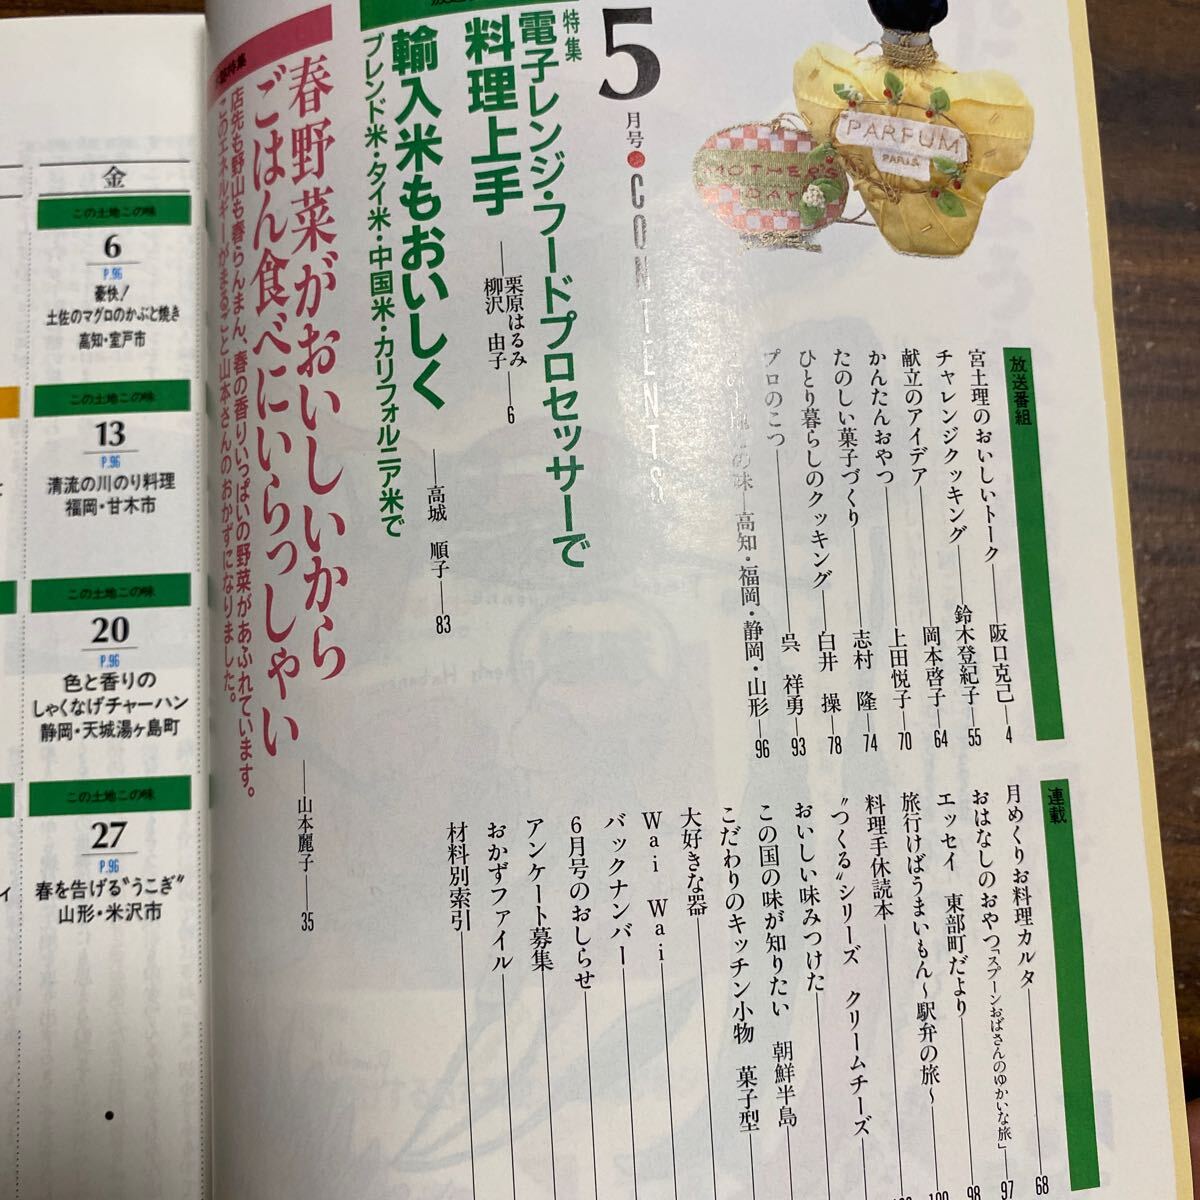 金
この土地この味
6
P.96
豪快!
土佐のマグロのかぶと焼き
高知・室戸市
この土地この味
13
P.96
清流の川のり料理
福岡・甘木市
この土地この味
20
P.96
色と香りの
しゃくなげチャーハン
静岡・天城湯ヶ島町
この土地この味
27
P.96
春を告げる〝うこぎ〟
山形・米沢市
PARFUM
PARIS
MOTHER'S
DAY
5
月号●CONTENTS
特集
電子レンジ・フードプロセッサーで
料理上手
栗原はるみ
柳沢 由子
6
輸入米もおいしく
高城 順子 83
ブレンド米・タイ米・中国米・カリフォルニア米で
特集
春野菜がおいしいから
ごはん食べにいらっしゃい
山本麗子 35
店先も野山も春らんまん、春の香りいっぱいの野菜があふれています。
このエネルギーがまるごと山本さんのおかずになりました。
放送番組
宮土理のおいしいトーク 阪口克己 4
チャレンジクッキング 鈴木登紀子 55
献立のアイデア 岡本啓子 64
かんたんおやつ 上田悦子 70
たのしい菓子づくり 志村 隆 74
ひとり暮らしのクッキング 白井 操 78
プロのこつ 呉 祥勇 93
この土地この味 高知・福岡・静岡・山形 96
連載
月めくりお料理カルタ 68
おはなしのおやつ「スプーンおばさんのゆかいな旅」 97
エッセイ 東部町だより 98
旅行けばうまいもん〜駅弁の旅〜 100
料理手休読本
〝つくる〟シリーズ クリームチーズ
おいしい味みつけた
この国の味が知りたい 朝鮮半島
こだわりのキッチン小物 菓子型
大好きな器
Wai Wai
バックナンバー
6月号のおしらせ
アンケート募集
おかずファイル
材料別索引